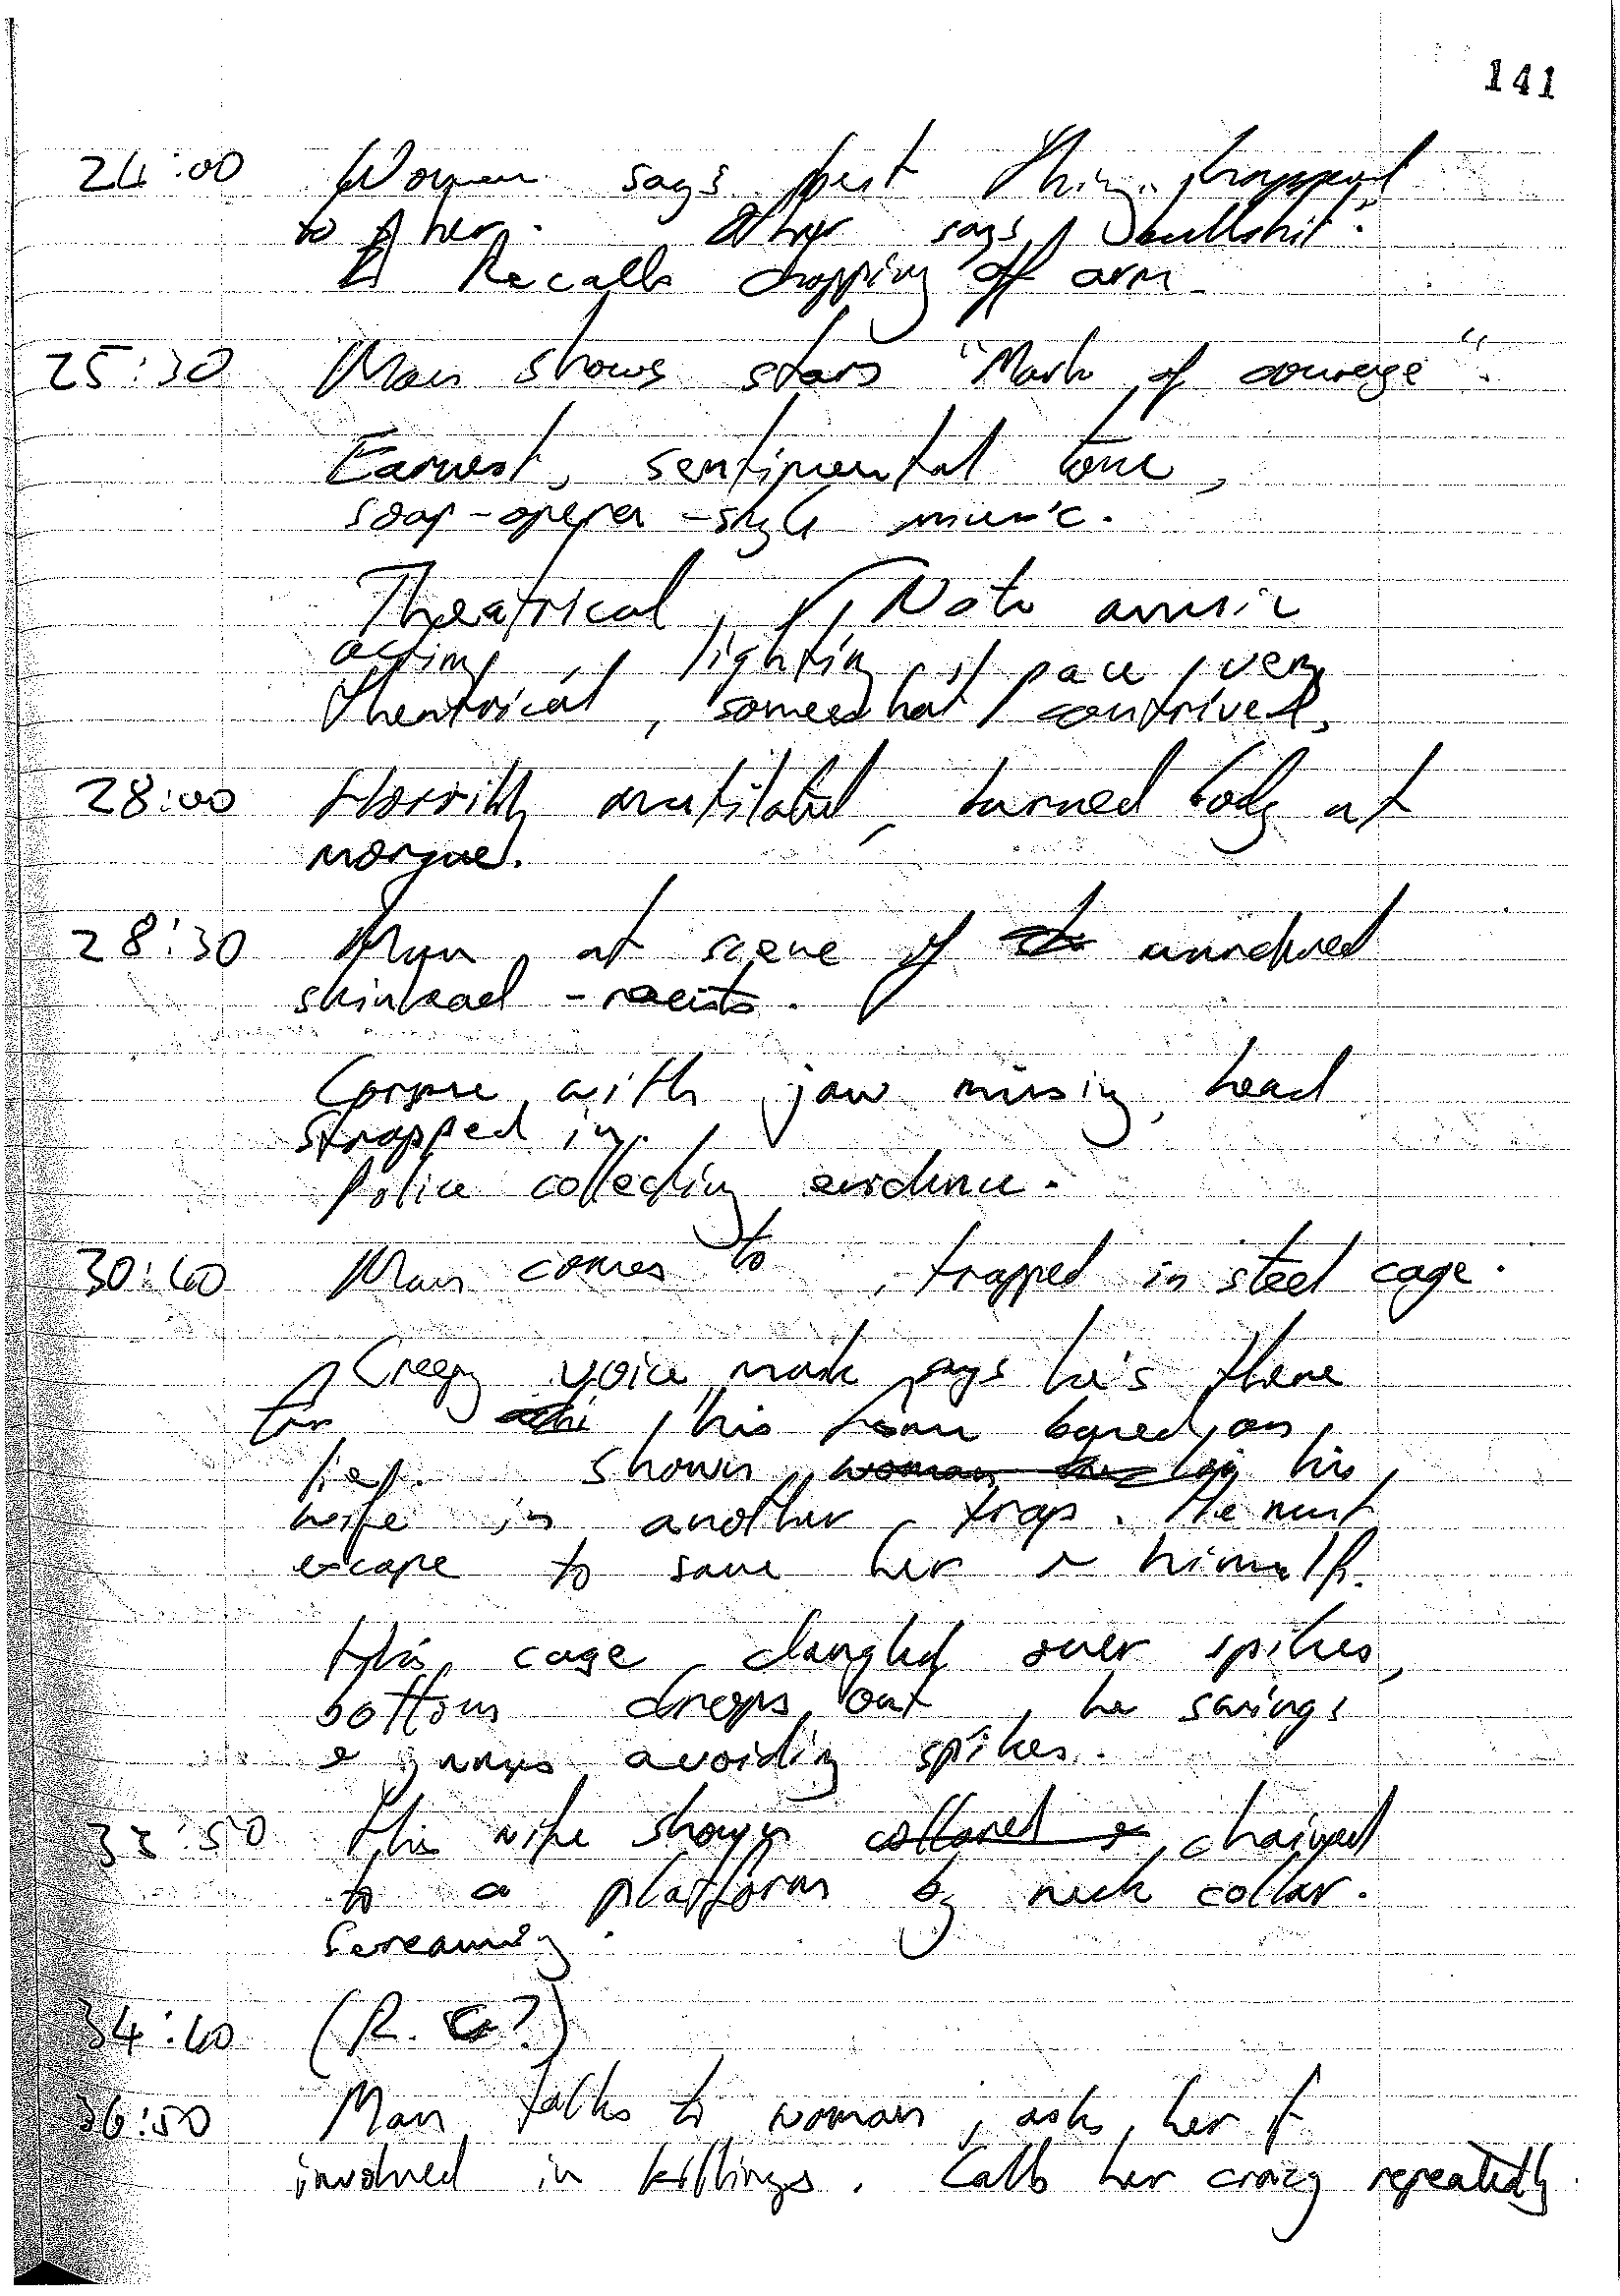 141
24:00 Woman says best thing happened
to her. Other says "bullshit".
Recalls chopping off arm.
25:30 Man shows stars "Mark of courage".
Earnest, sentimental tone,
soap-opera-style music.
Theatrical, Note music
acting, lighting, pace, very
theatrical, somewhat contrived.
28:00 Horribly mutilated, burned body at
morgue.
28:30 Man at scene of murdered
skinhead - racists.
Corpse with jaw missing, head
strapped in.
Police collecting evidence.
30:40 Man comes to, trapped in steel cage.
Creepy voice mask says he's there
for his fame based on
lies. Shown his
wife in another trap. He must
escape to save her & himself.
His cage dangled over spikes,
bottom drops out, he swings
& jumps avoiding spikes.
33:50 His wife shown collared & chained
to a platform by neck collar.
Screaming.
34:40 (R. C?)
36:50 Man talks to woman, asks her if
involved in killings. Calls her crazy repeatedly